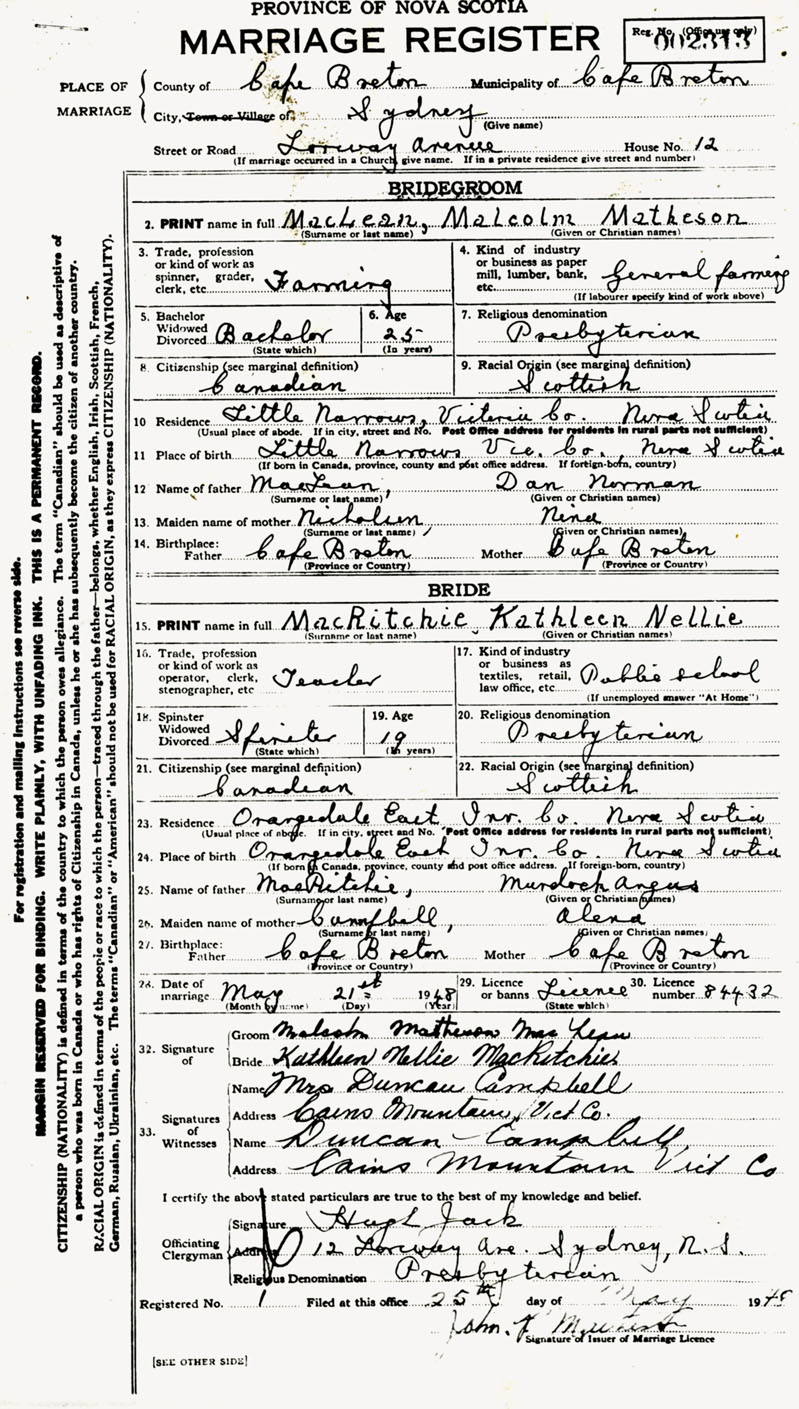 PROVINCE OF NOVA SCOTIA
MARRIAGE REGISTER
Reg. No. (Office use only)
002313
PLACE OF MARRIAGE
County of Cape Breton Municipality of Cape Breton
City, Town or Village of Sydney
(Give name)
Street or Road Lorway Avenue House No. 12
(If marriage occurred in a Church, give name. If in a private residence give street and number)
BRIDEGROOM
2. PRINT name in full MacLean, Malcolm Matheson
(Surname or last name) (Given or Christian names)
3. Trade, profession or kind of work as spinner, grader, clerk, etc. Farming
4. Kind of industry or business as paper mill, lumber, bank, etc. General farming
(If labourer specify kind of work above)
5. Bachelor Widowed Divorced Bachelor
(State which)
6. Age 25
(In years)
7. Religious denomination
Presbyterian
8. Citizenship (see marginal definition)
Canadian
9. Racial Origin (see marginal definition)
Scottish
10 Residence Little Narrows, Victoria Co. Nova Scotia
(Usual place of abode. If in city, street and No. Post Office address for residents in rural parts not sufficient)
11 Place of birth Little Narrows Vic. Co., Nova Scotia
(If born in Canada, province, county and post office address. If foreign-born, country)
12 Name of father MacLean, Dan Norman
(Surname or last name) (Given or Christian names)
13. Maiden name of mother Nicholson, Nina
(Surname or last name) (Given or Christian names)
14. Birthplace: Father Cape Breton Mother Cape Breton
(Province or Country) (Province or Country)
BRIDE
15. PRINT name in full MacRitchie, Kathleen Nellie
(Surname or last name) (Given or Christian names)
16. Trade, profession or kind of work as operator, clerk, stenographer, etc Teacher
17. Kind of industry or business as textiles, retail, law office, etc. Public school
(If unemployed answer "At Home")
18. Spinster Widowed Divorced Spinster
(State which)
19. Age 19
(In years)
20. Religious denomination
Presbyterian
21. Citizenship (see marginal definition)
Canadian
22. Racial Origin (see marginal definition)
Scottish
23. Residence Orangedale East Inv. Co. Nova Scotia
(Usual place of abode. If in city, street and No. Post Office address for residents in rural parts not sufficient)
24. Place of birth Orangedale East Inv. Co. Nova Scotia
(If born in Canada, province, county and post office address. If foreign-born, country)
25. Name of father MacRitchie, Murdoch Angus
(Surname or last name) (Given or Christian names)
26. Maiden name of mother Campbell, Alena
(Surname or last name) (Given or Christian names)
27. Birthplace: Father Cape Breton Mother Cape Breton
(Province or Country) (Province or Country)
28. Date of marriage May 21st 1948
(Month by name) (Day) (Year)
29. Licence or banns Licence
(State which)
30. Licence number 84432
32. Signature of
Groom Malcolm Matheson MacLean
Bride Kathleen Nellie MacRitchie
33. Signatures of Witnesses
Name Mrs Duncan Campbell
Address Cains Mountain, Vict Co.
Name Duncan Campbell
Address Cains Mountain Vict Co
I certify the above stated particulars are true to the best of my knowledge and belief.
Officiating Clergyman
Signature Hugh Jack
Address 12 Lorway Ave. Sydney, N.S.
Religious Denomination Presbyterian
Registered No. 1 Filed at this office 25th day of May 1948
John
Signature of Issuer of Marriage Licence
[SEE OTHER SIDE]
For registration and mailing instructions see reverse side.
MARGIN RESERVED FOR BINDING. WRITE PLAINLY, WITH UNFADING INK. THIS IS A PERMANENT RECORD.
CITIZENSHIP (NATIONALITY) is defined in terms of the country to which the person owes allegiance. The term "Canadian" should be used as descriptive of
a person who was born in Canada or who has rights of Citizenship in Canada, unless he or she has subsequently become the citizen of another country.
RACIAL ORIGIN is defined in terms of the people or race to which the person—traced through the father—belongs, whether English, Irish, Scottish, French,
German, Russian, Ukrainian, etc. The terms "Canadian" or "American" should not be used for RACIAL ORIGIN, as they express CITIZENSHIP (NATIONALITY).